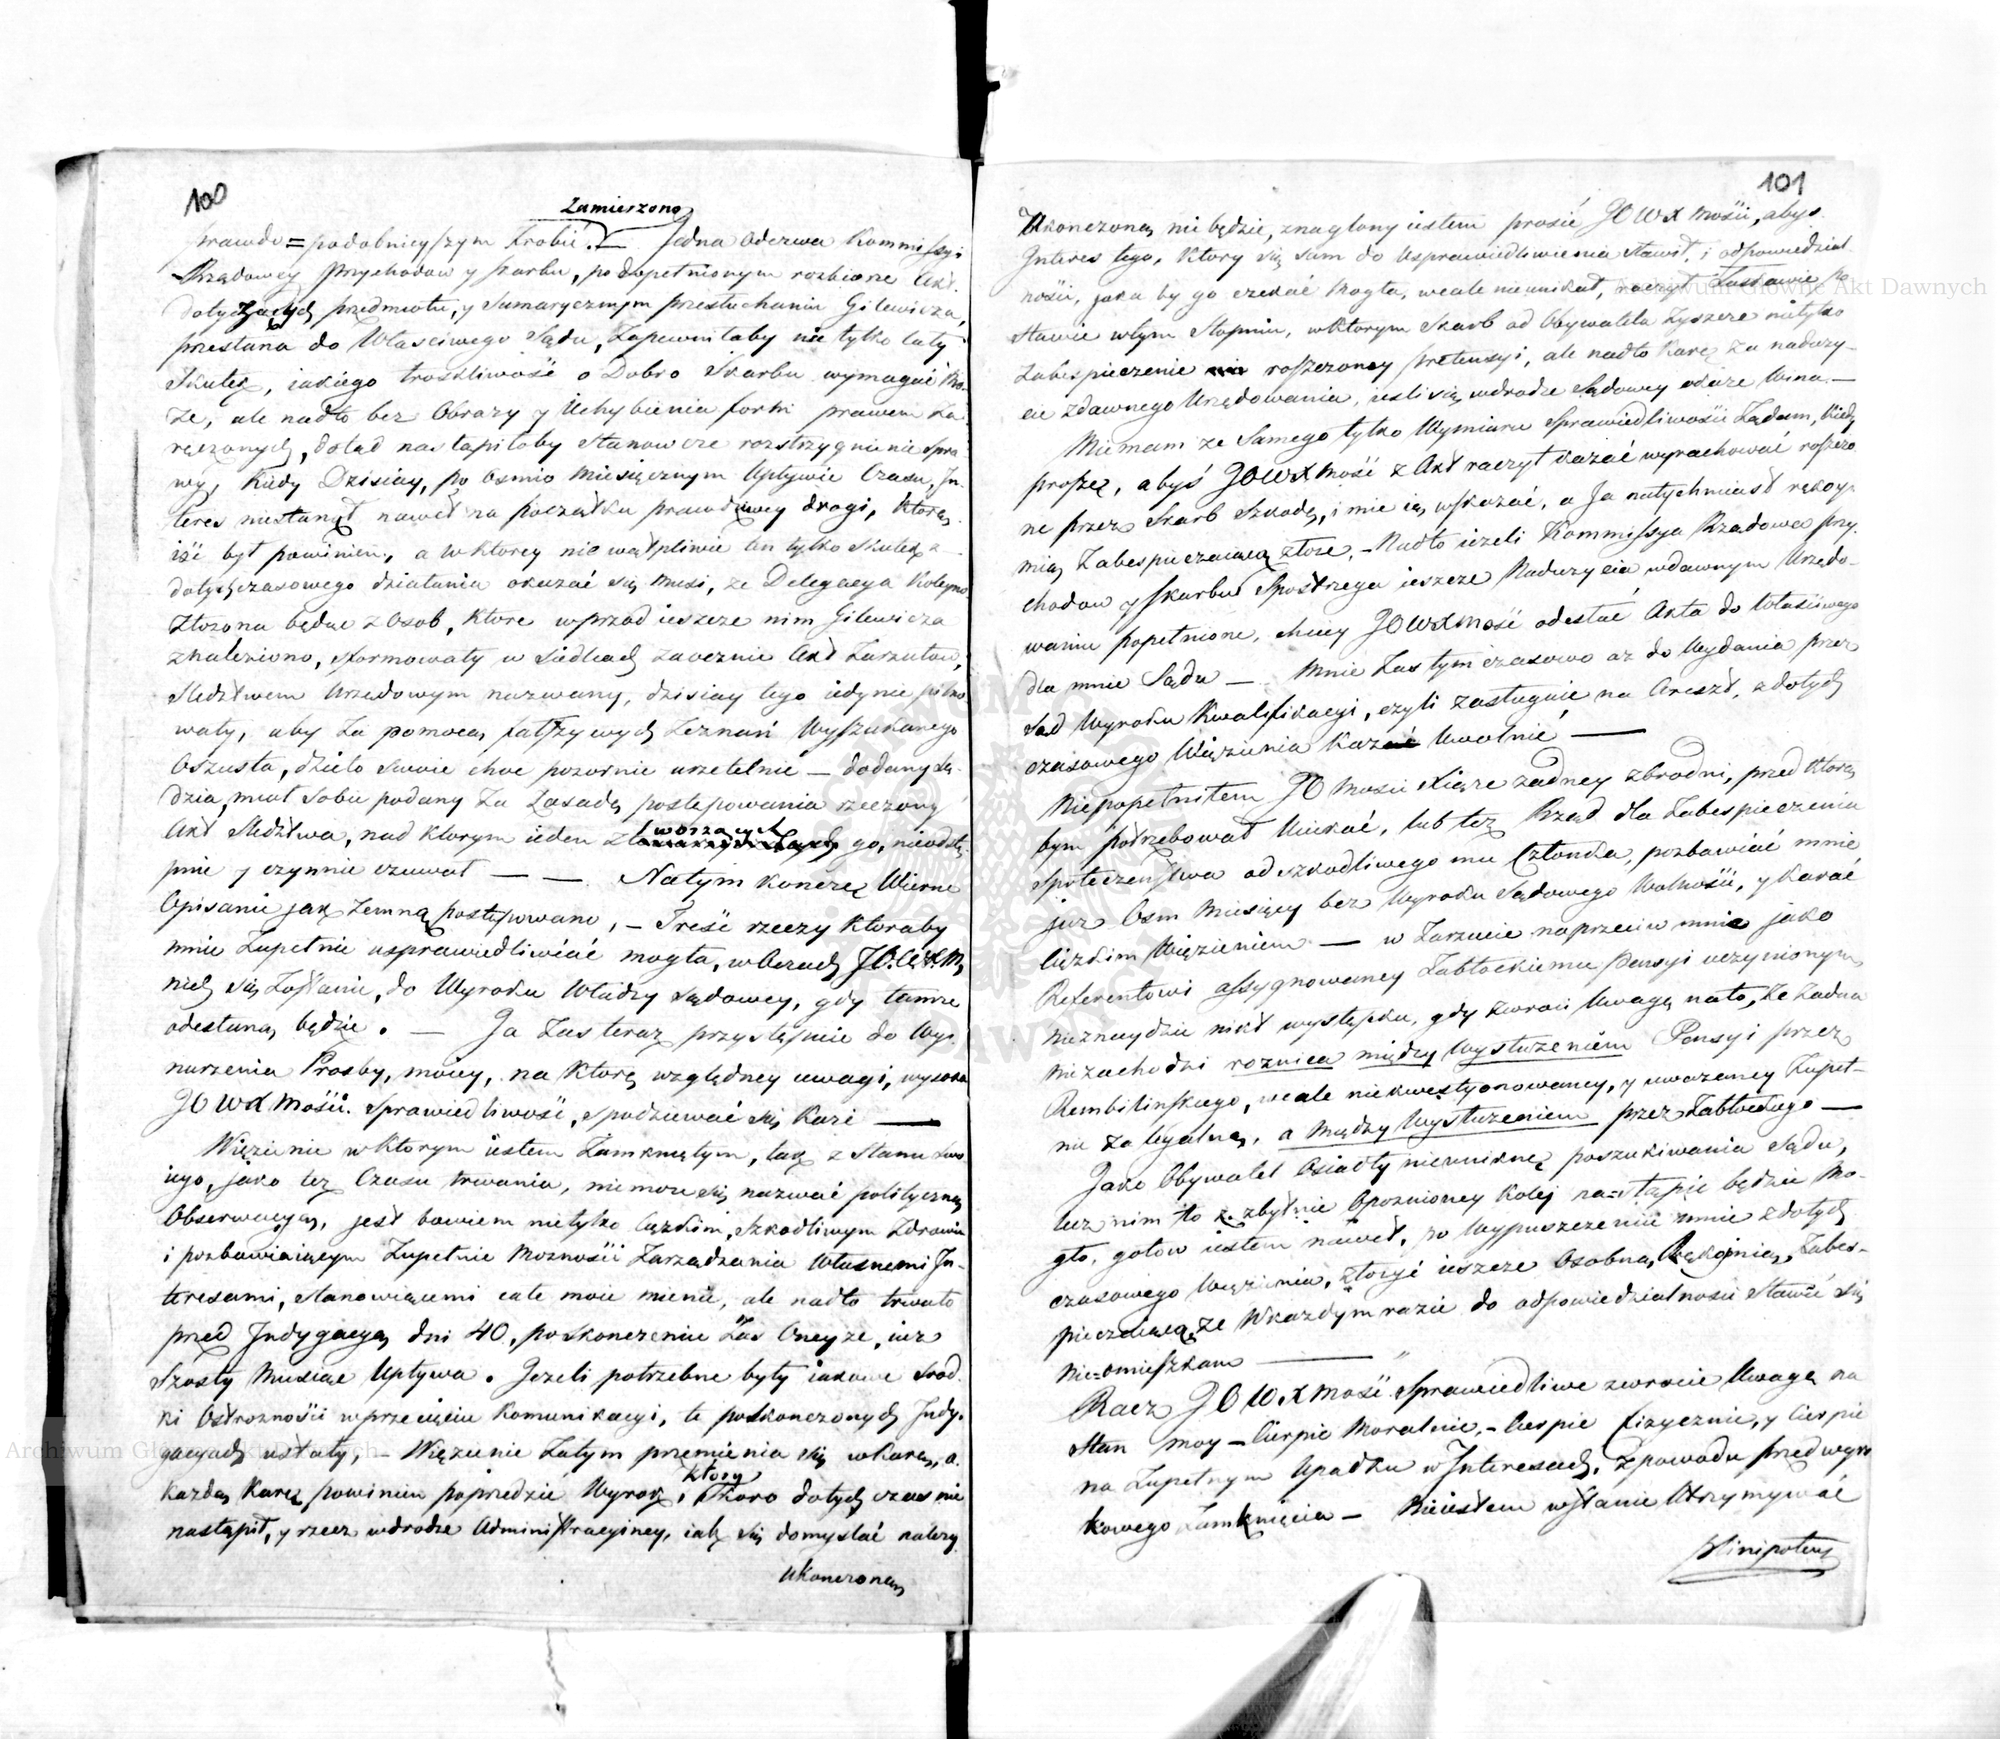 100
Zamierzono
prawdo=podobnieyszym krobić. — Jedna Odezwa Kommissyi
Rządowey Przychodow y skarbu, po dopełnionym rozbiorze Akt.
dotyczących przedmiotu, y Sumarycznym przesłuchaniu Gilewicza,
przesłana do Właściwego Sądu, Zapewniłaby nie tylko cały
Skutek, iakiego troskliwość o Dobro Skarbu wymagać mo-
że, ale nadto bez Obrazy y Uchybienia form prawem Za-
ręczonych, dotąd nastąpiłoby stanowcze rozstrzygnienie Spra-
wy, Kiedy Dzisiay, po Osmio Miesięcznym Upływie Czasu, In-
teres niestanął nawet na początku prawdziwey drogi, którą
iść był powinien, a w ktorey niewątpliwie ten tylko skutek z
dotychczasowego działania okazać się musi, że Delegacya Kolejno
złożona będąc z Osob, ktore wprzod ieszcze nim Gilewicza
znaleziono, sformowały w Siedlcach zaocznie Akt Zarzutow,
Sledztwem Urzędowym nazwany, dzisiay tego iedynie pilno-
wały, aby za pomocą fałszywych Zeznań Wyszukanego
Oszusta, dzieło swoie choc pozornie urzetelnić — dodany Sę-
dzia, miał sobie podany za Zasadę postępowania rzeczony
Akt Sledztwa, nad ktorym ieden z tworzących go, nieodstę-
pnie y czynnie czuwał — — Na tym koncze Wierne
Opisanie jak zemną postępowano, — Treść rzeczy ktoraby
mnie Zupełnie usprawiedliwiać mogła, w Oczach JO. W.X.M
niech się Zostanie, do Wyroku Władzy Sądowey, gdy tamże
odesłaną będzie. — Ja Zas teraz przystępuię do Wy-
nurzenia Prosby, moiey, na ktorą względney uwagi, wysoka
JO WX Mości Sprawiedliwość, spodziewać się Każe —
Więzienie w ktorym iestem Zamkniętym, tak z Stanu Swo-
iego, jako też Czasu trwania, nie może się nazwać polityczną
Obserwacyą, jest bowiem nietylko ciężkim, Szkodliwym Zdrowiu
i pozbawiaiącym Zupełnie Możności Zarządzania Własnemi In-
teresami, stanowiącemi całe moie mienie, ale nadto trwało
przed Indygacyą dni 40, po skonczeniu Zas Oneyże, iuż
Szosty Miesiąc Upływa. Jeżeli potrzebne były iakowe Srod-
ki Ostrożności w przecięciu Komunikacyi, te po skonczonych Indy-
gacyach ustały, — Więzienie Zatym przemienia się w Karę, a
każdą Karę powinien poprzedzić Wyrok, który Skoro dotych czas nie
nastąpił, y rzecz w drodze Administracyiney, iak się domyslać należy
ukonczoną
101
Ukonczoną nie będzie, znaglony iestem prosić JO WX Mości, abyś
Interes tego, ktory się sam do Usprawiedliwienia stawił, i odpowiedzial-
ności, jaka by go czekać mogła, wcale nie unikał, raczył Łaskawie po-
stawić w tym Stopniu, w ktorym Skarb od Obywatela Zyszcze nietylko
Zabespieczenie roszczoney pretensyi, ale nadto Karę za naduży-
cie z dawnego Urzędowania, iesli się w drodze Sądowey okaże Wina. —
Mniemam że Samego tylko Wymiaru Sprawiedliwości Żądam, Kiedy
proszę, abyś JOWX Mość z Akt raczył kazać wyrachować roszczo-
ne przez Skarb Szkody, i mnie ią wskazać, a Ja natychmiast rękoy-
mią Zabespieczaiącą złożę, — Nadto ieżeli Kommissya Rządowa Przy-
chodow y skarbu Spostrzega ieszcze Nadużycia w dawnym Urzędo-
waniu popełnione, chciey JOWXMość odesłać Akta do własciwego
dla mnie Sądu — Mnie Zas tymczasowo aż do Wydania przez
Sąd Wyroku Kwalifikacyi, czyli zasługuię na Areszt, z dotych
czasowego Więzienia Kazać Uwolnić —
Niepopełniłem JO Mości Xiąże żadney zbrodni, przed ktorą
bym potrzebował Uciekać, lub też Rząd dla Zabespieczenia
społeczeństwa od szkodliwego mu Członka, pozbawiać mnie
już Osm Miesięcy bez Wyroku Sądowego Wolności, y Karać
Ciężkim Więzieniem — w Zarzucie naprzeciw mnie jako
Referentowi assygnowaney Zabłockiemu Pensyi uczynionym
nieznaydzie nikt występku, gdy zwroci Uwagę na to, że żadna
niezachodzi roznica między Wysłużeniem Pensyi przez
Rembilińskiego, wcale niekwestyonowaney, y uważaney Zupeł-
nie za legalną, a między Wysłużeniem przez Zabłockiego —
Jako Obywatel Osiadły nieuniknę poszukiwania Sądu,
lecz nim to z zbytnie Opoznioney Kolej nastąpić będzie mo-
gło, gotow iestem nawet, po Wypuszczeniu mnie z dotych
czasowego Więzienia, złożyć ieszcze Osobną Rękojmią, Zabes-
pieczaiącą, że w Każdym razie do odpowiedzialności stawić się
nieomieszkam —
Racz JO W.X Mość Sprawiedliwie zwrocić Uwagę na
Stan moy — Cierpię Moralnie, — Cierpię fizycznie, y Cierpię
na Zupełnym Upadku w Interesach, z powodu przedwyro-
kowego Zamknięcia — Nieiestem w Stanie Utrzymywać
Plenipotenta